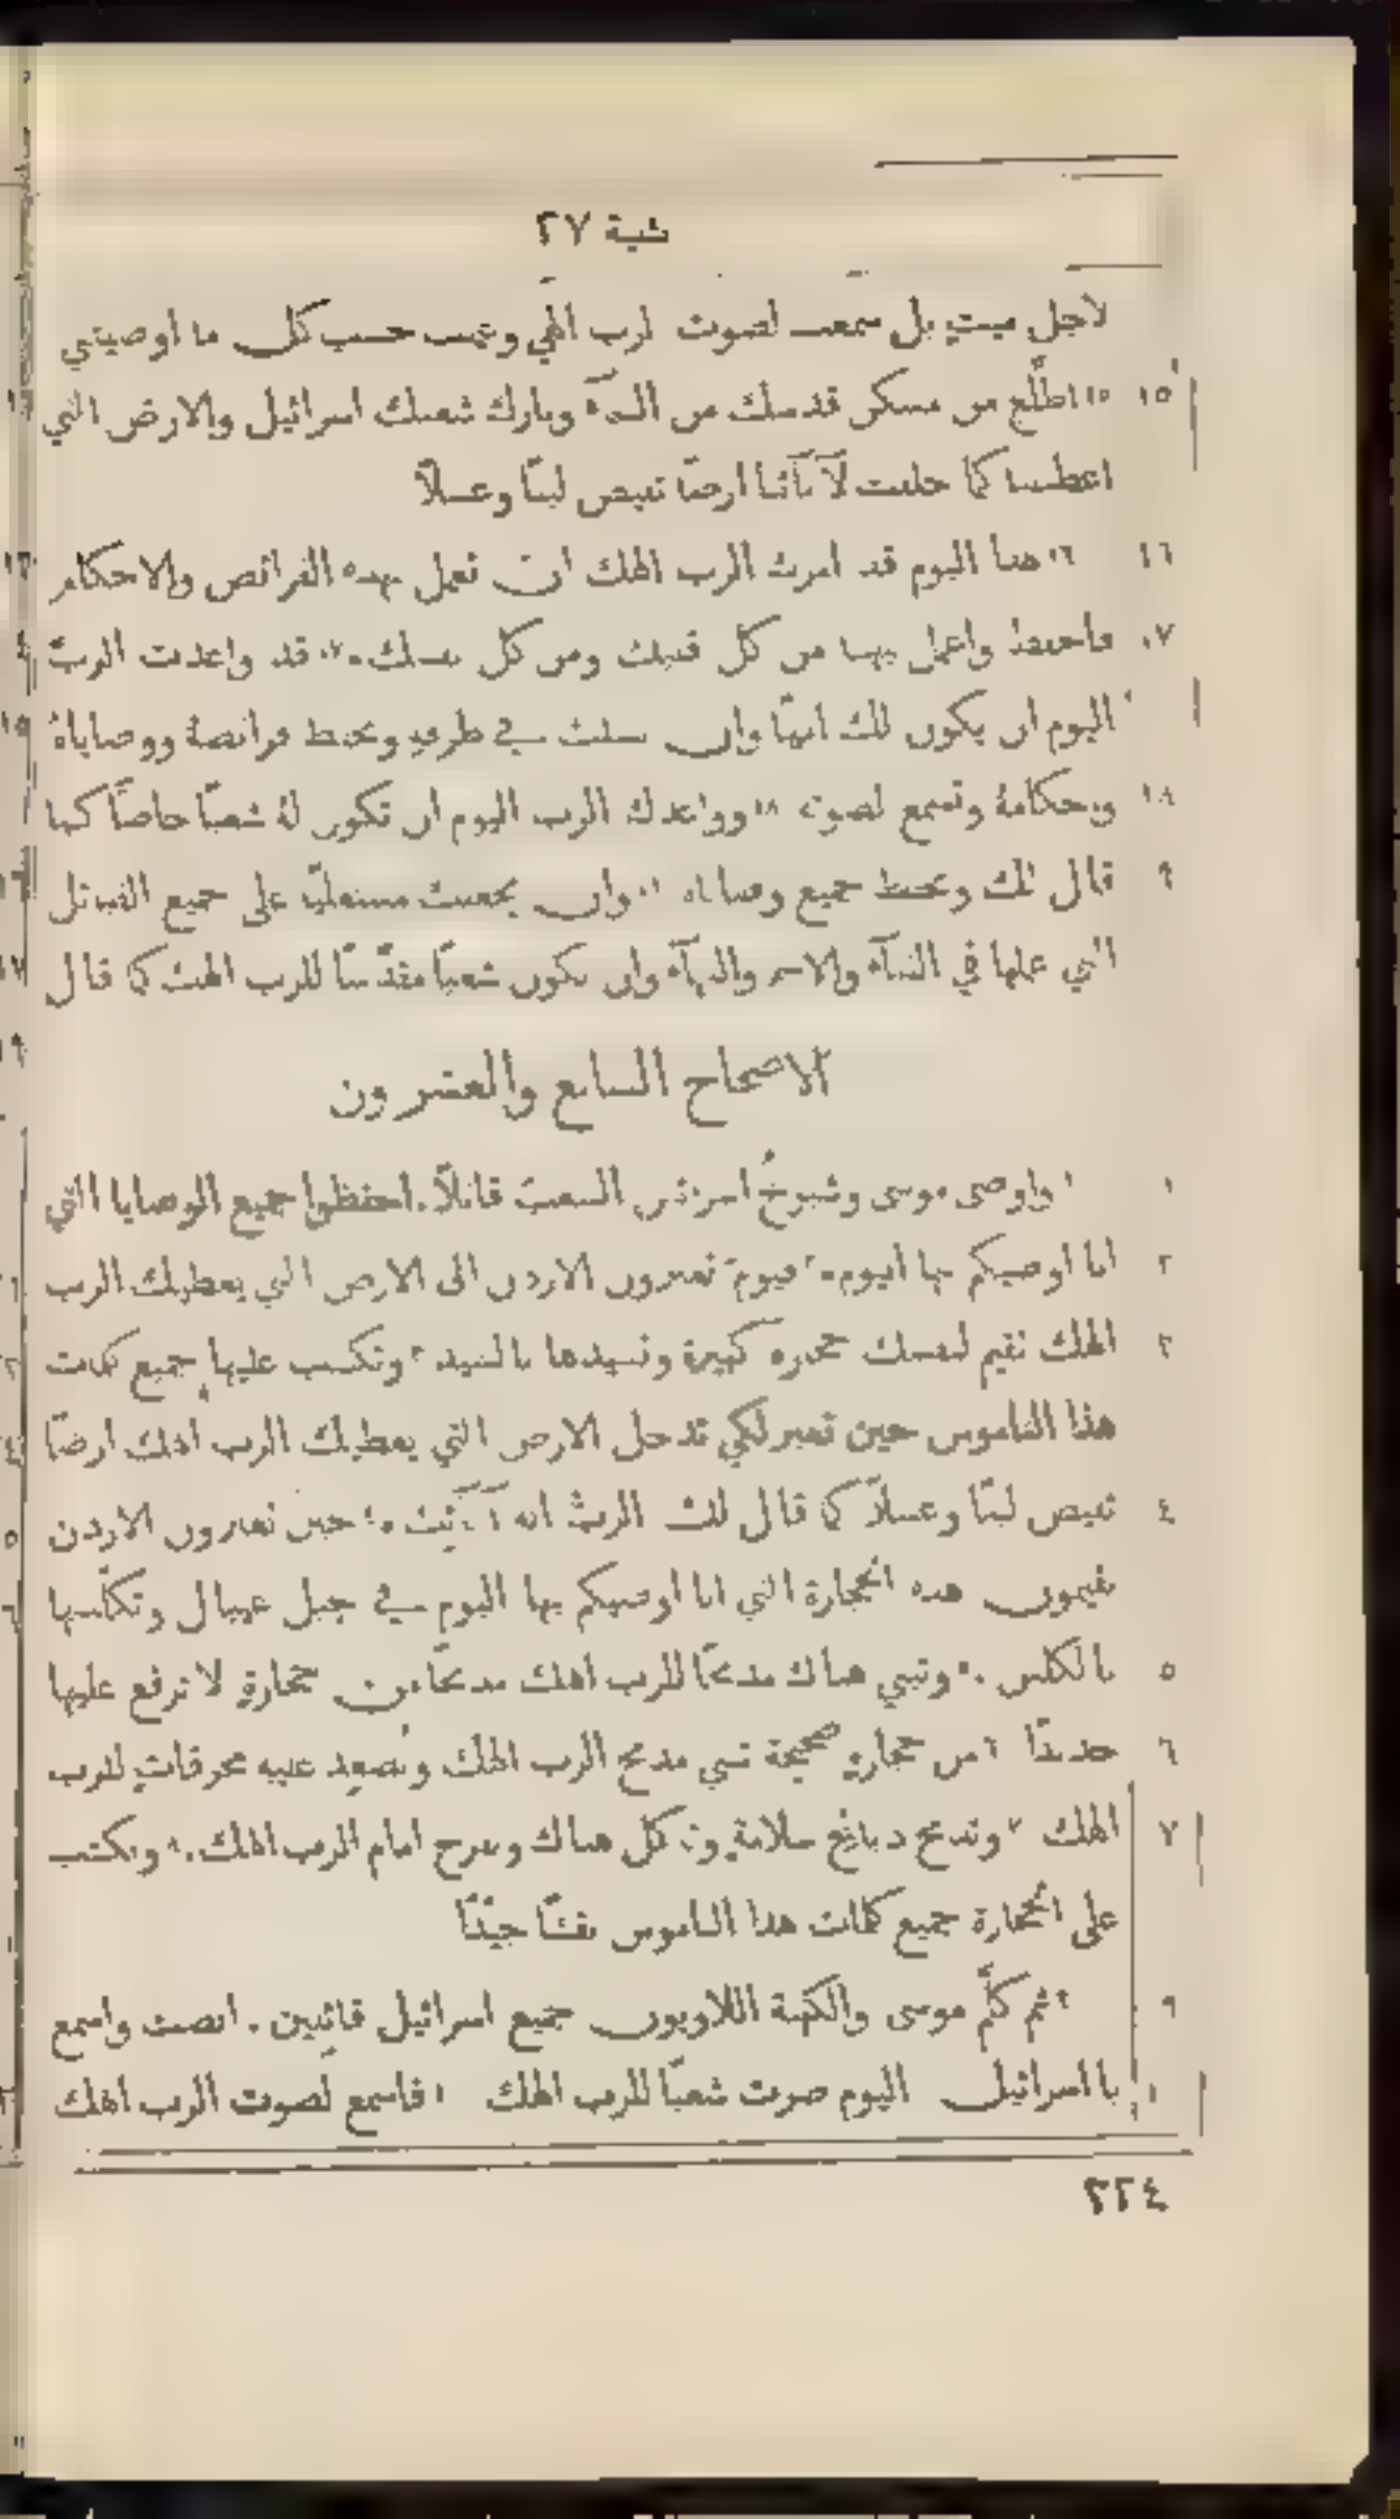 تثنية ٢٧
لاجل ميت بل سمعت لصوت الرب الهي وعملت حسب كل ما اوصيتني
١٥ ١٥ اطّلع من مسكن قدسك من السمآء وبارك شعبك اسرائيل والارض التي
اعطيتنا كما حلفت لآبآئنا ارضًا تفيض لبنًا وعسلًا
١٦ ١٦ هذا اليوم قد امرك الرب الهك ان تعمل بهذه الفرائض والاحكام
١٧ فاحفظ واعمل بها من كل قلبك ومن كل نفسك. ١٧ قد واعدت الربَّ
اليوم ان يكون لك الهًا وان تسلك في طرقهِ وتحفظ فرائضهُ ووصاياهُ
١٨ واحكامهُ وتسمع لصوته ١٨ وواعدك الرب اليوم ان تكون لهُ شعبًا خاصًّا كما
٩ قال لك وتحفظ جميع وصاياه ١٩ وان يجعلك مستعليًا على جميع القبائل
التي عملها في الثنآء والاسم والبهآء وان تكون شعبًا مقدّسًا للرب الهك كما قال
الاصحاح السابع والعشرون
١ ١ واوصى موسى وشيوخُ اسرائيل الشعبَ قائلًا. احفظوا جميع الوصايا التي
٢ انا اوصيكم بها اليوم. ٢ فيوم تعبرون الاردن الى الارض التي يعطيك الرب
٣ الهك تقيم لنفسك حجارة كبيرة وتشيدها بالشيد. ٣ وتكتب عليها جميع كلمات
هذا الناموس حين تعبر لكي تدخل الارض التي يعطيك الرب الهك ارضًا
٤ تفيض لبنًا وعسلًا كما قال لك الربُّ اله آبآئك. ٤ حين تعبرون الاردن
تقيمون هذه الحجارة التي انا اوصيكم بها اليوم في جبل عيبال وتكلّسها
٥ بالكلس. ٥ وتبني هناك مذبحًا للرب الهك مذبحًا من حجارةٍ لا ترفع عليها
٦ حديدًا ٦ من حجارةٍ صحيحة تبني مذبح الرب الهك وتُصعِد عليه محرقاتٍ للرب
٧ الهك ٧ وتذبح ذبائح سلامةٍ وتاكل هناك وتفرح امام الرب الهك. ٨ وتكتب
على الحجارة جميع كلمات هذا الناموس نقشًا جيّدًا
٩ ٩ ثم كلّم موسى والكهنة اللاويون جميع اسرائيل قائلين. انصت واسمع
يا اسرائيل اليوم صرت شعبًا للرب الهك ١ فاسمع لصوت الرب الهك
٢٢٤